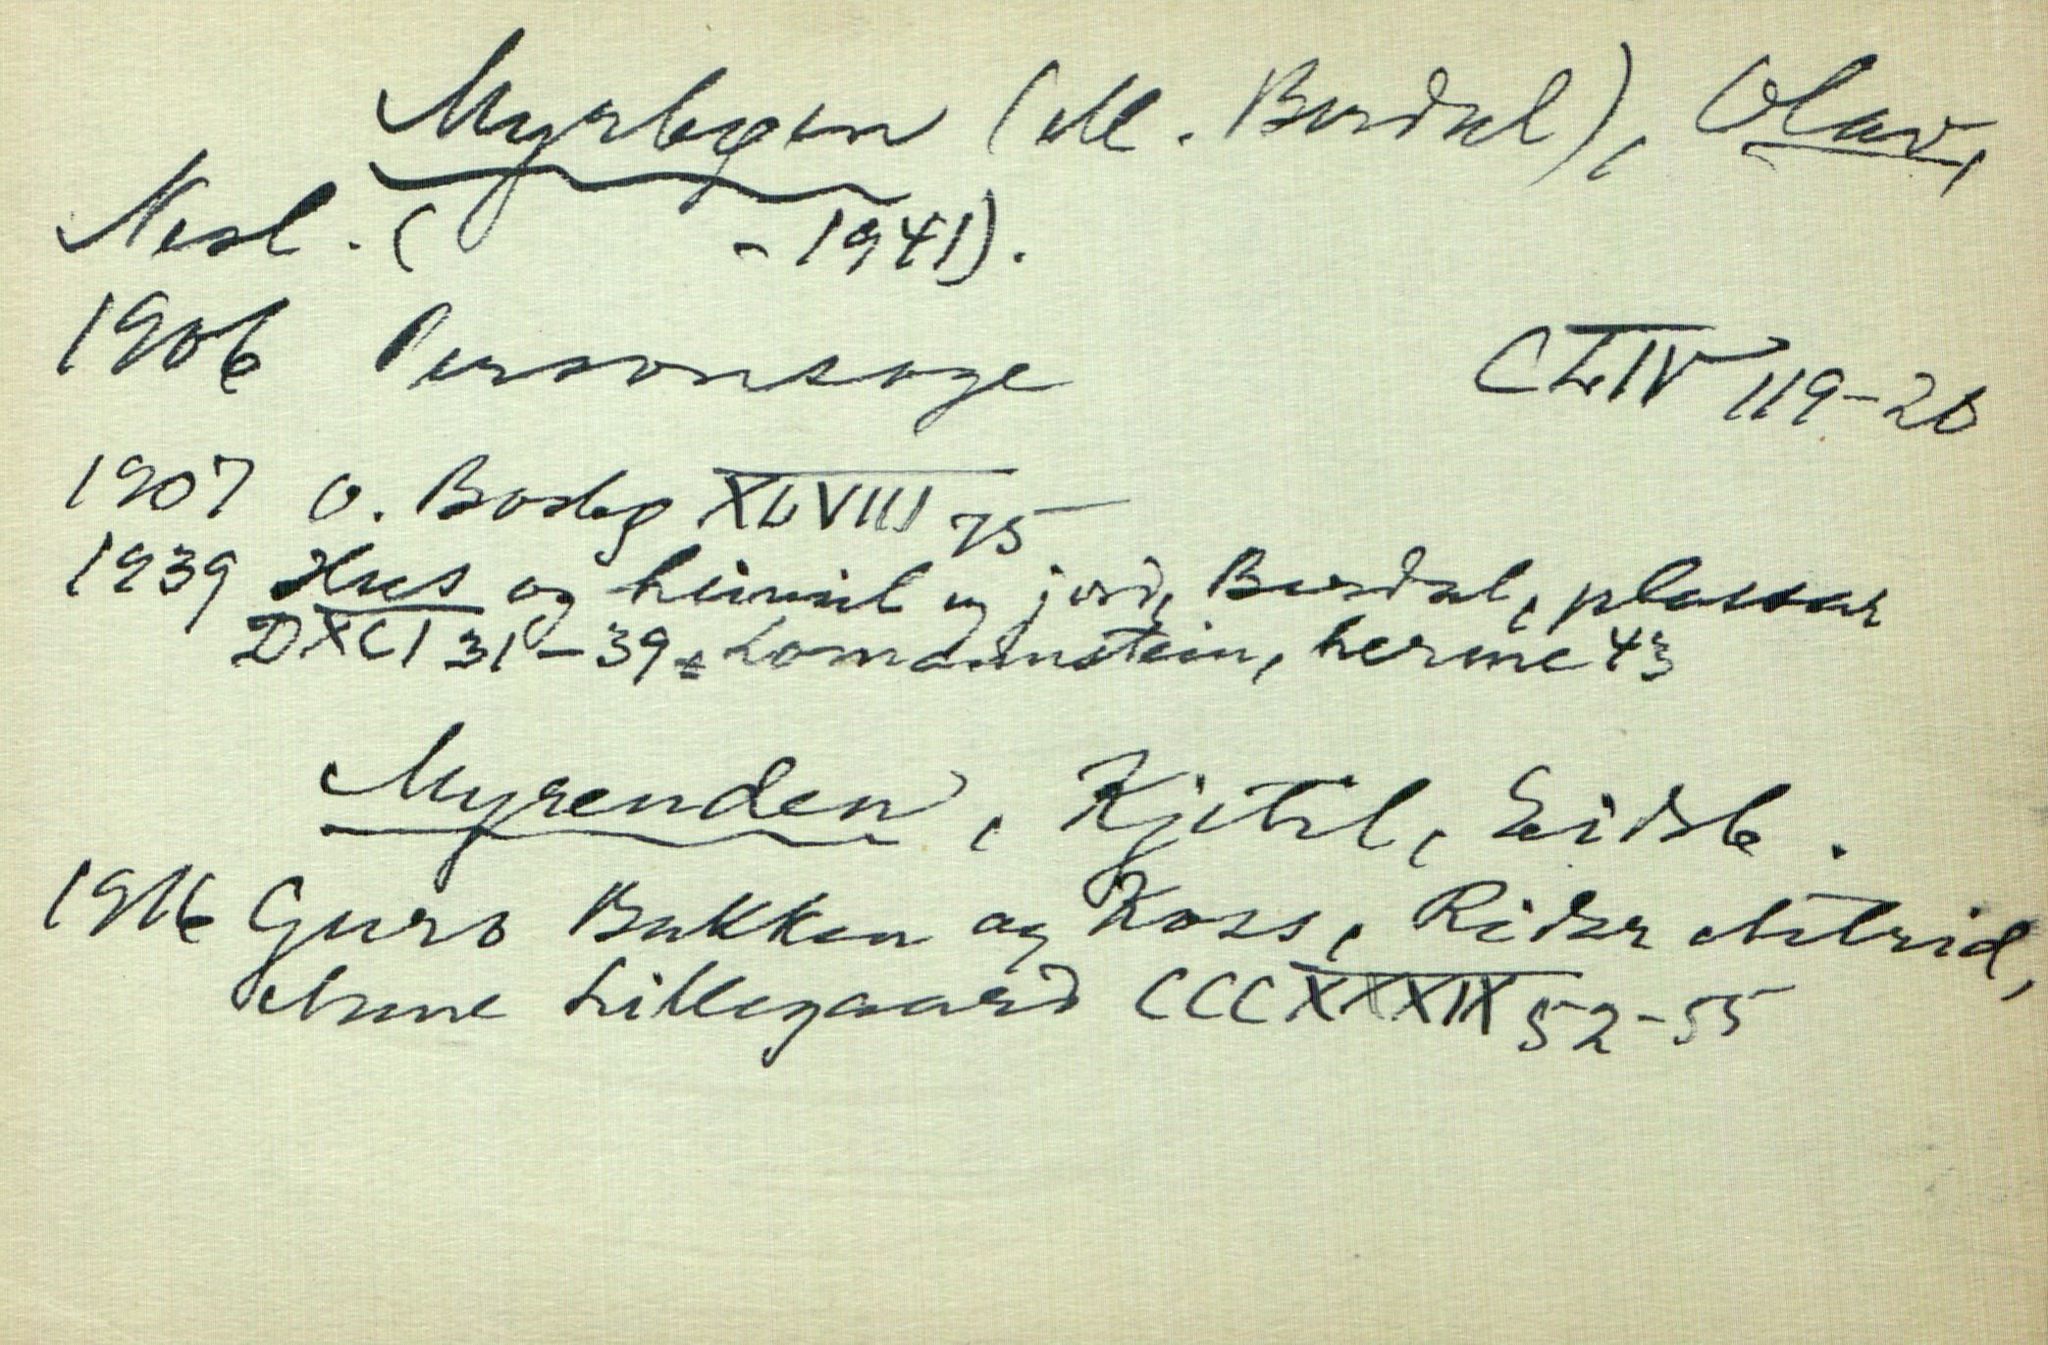 Myrbøen (M. Bordal), Olav,
Nesl. ( - 1941).
1906 Personsoge CLIV 119-20
1907 O. Bosbø XLVIII 75
1939 Hus og heimil og jord, Bordal, plassar
DXCI 31-39. Lomannstein, herme 43
Myrenden, Kjetil, Eidsb.
1916 Guro Bakken og Koss, Riddar Astrid,
Anne Lillegaard CCCXXXIX 52-55